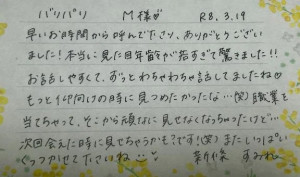 バリバリ M様♡ R8.3.19
早いお時間から呼んで下さり、ありがとうござい
ました！本当に見た目年齢が若すぎて驚きました!!
お話しやすくて、ずっとわちゃわちゃ話してましたね♡
もっと仰向けの時に見つめたかったな…(笑)職業を
当てちゃって、そこから頑なに見せなくなっちゃったけど…
次回会えた時に見せちゃうかも?です!(笑)またいっぱい
くっつかせて下さいね
新條 すみれ